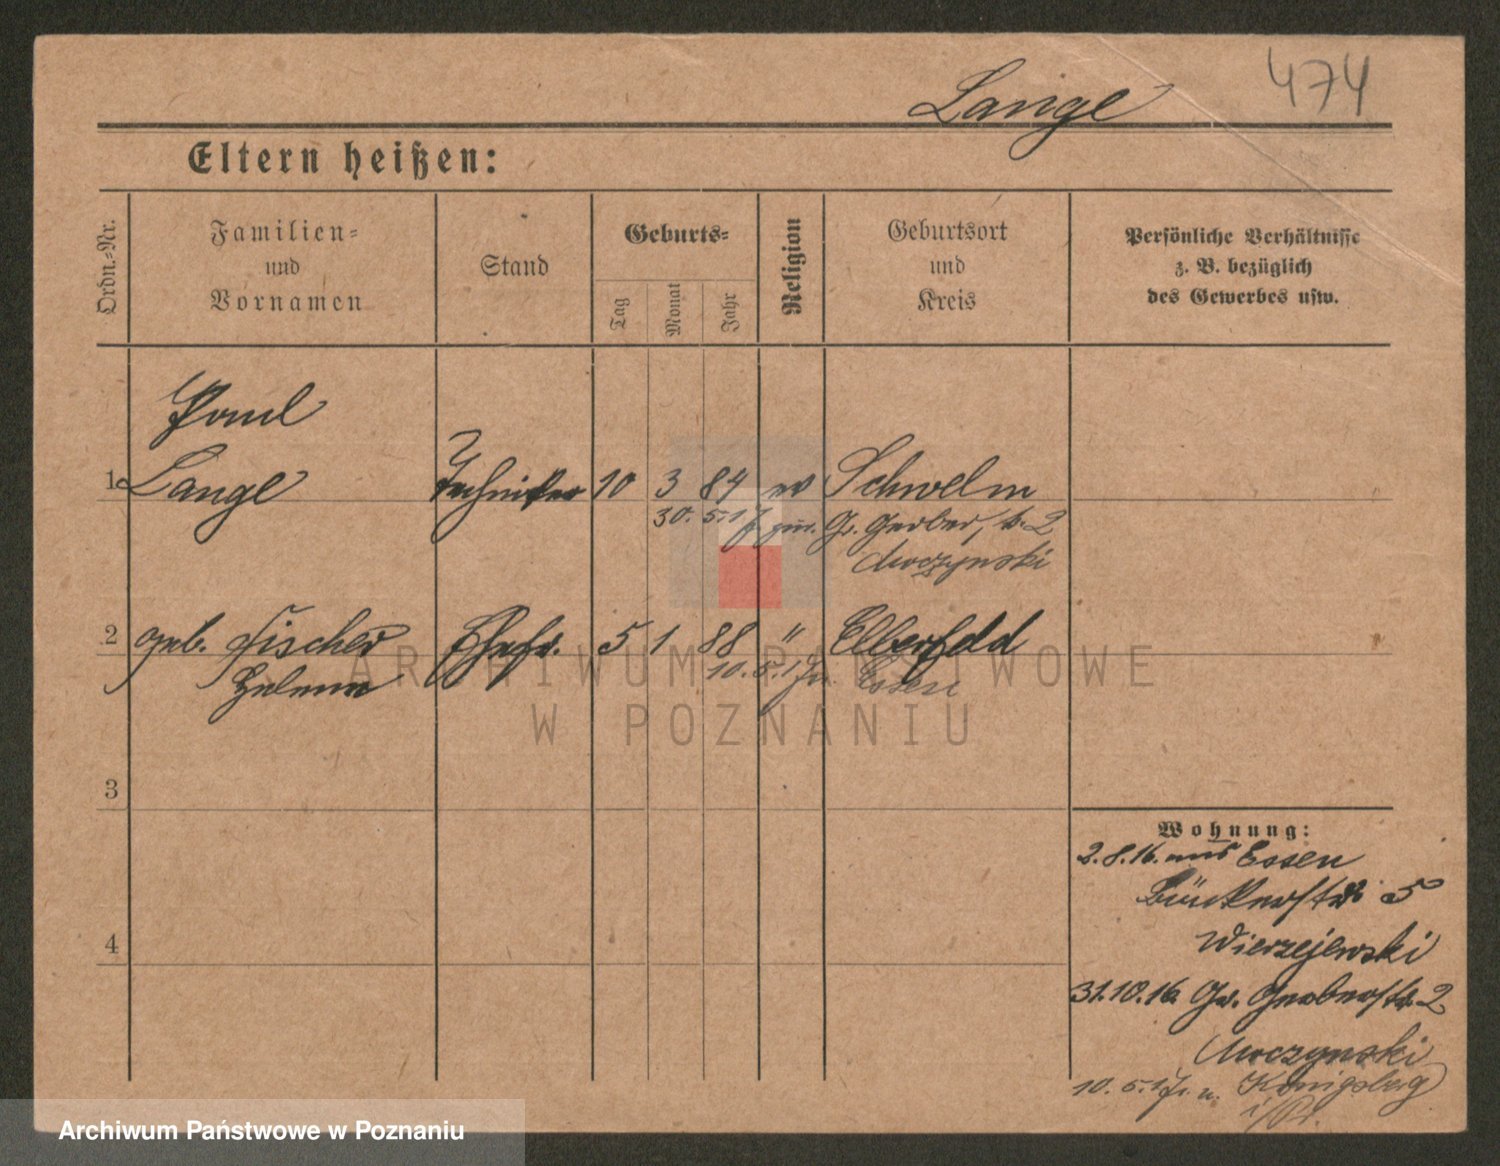 474
Lange
Eltern heißen:
Ordn.-Nr.
Familien-
und
Vornamen
Stand
Geburts-
Tag
Monat
Jahr
Religion
Geburtsort
und
Kreis
Persönliche Verhältnisse
z. B. bezüglich
des Gewerbes usw.
Paul
1 Lange Techniker 10 3 84 ev Schwelm
30. 5. 17 Gr. Gerber, 2
2 geb. Fischer Ehefr. 5 1 88 " Elberfeld
Helene 10. 5. 17 Essen
3
4
Wohnung:
2.8.16. aus Essen
5
Wierzejewski
31.10.16 Gr. Gerberstr. 2
10. 5. 17 n. Königsberg
i/Pr.
ARCHIWUM PAŃSTWOWE
W POZNANIU
Archiwum Państwowe w Poznaniu